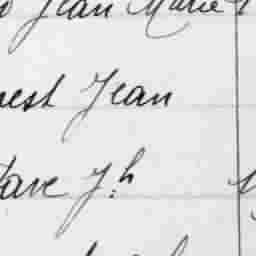 Jean Marie
nest Jean
tave J.h